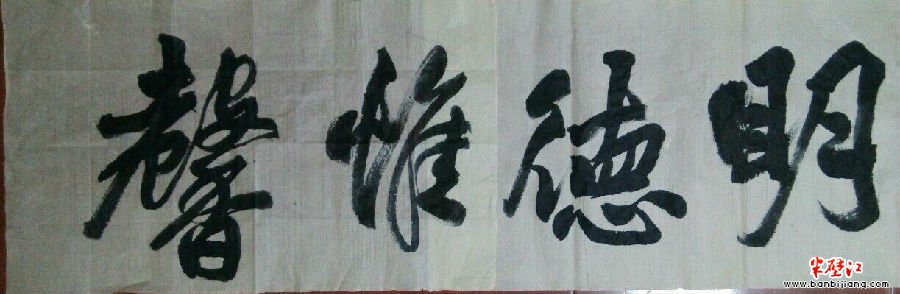 明德惟馨
半壁江
www.banbijiang.com